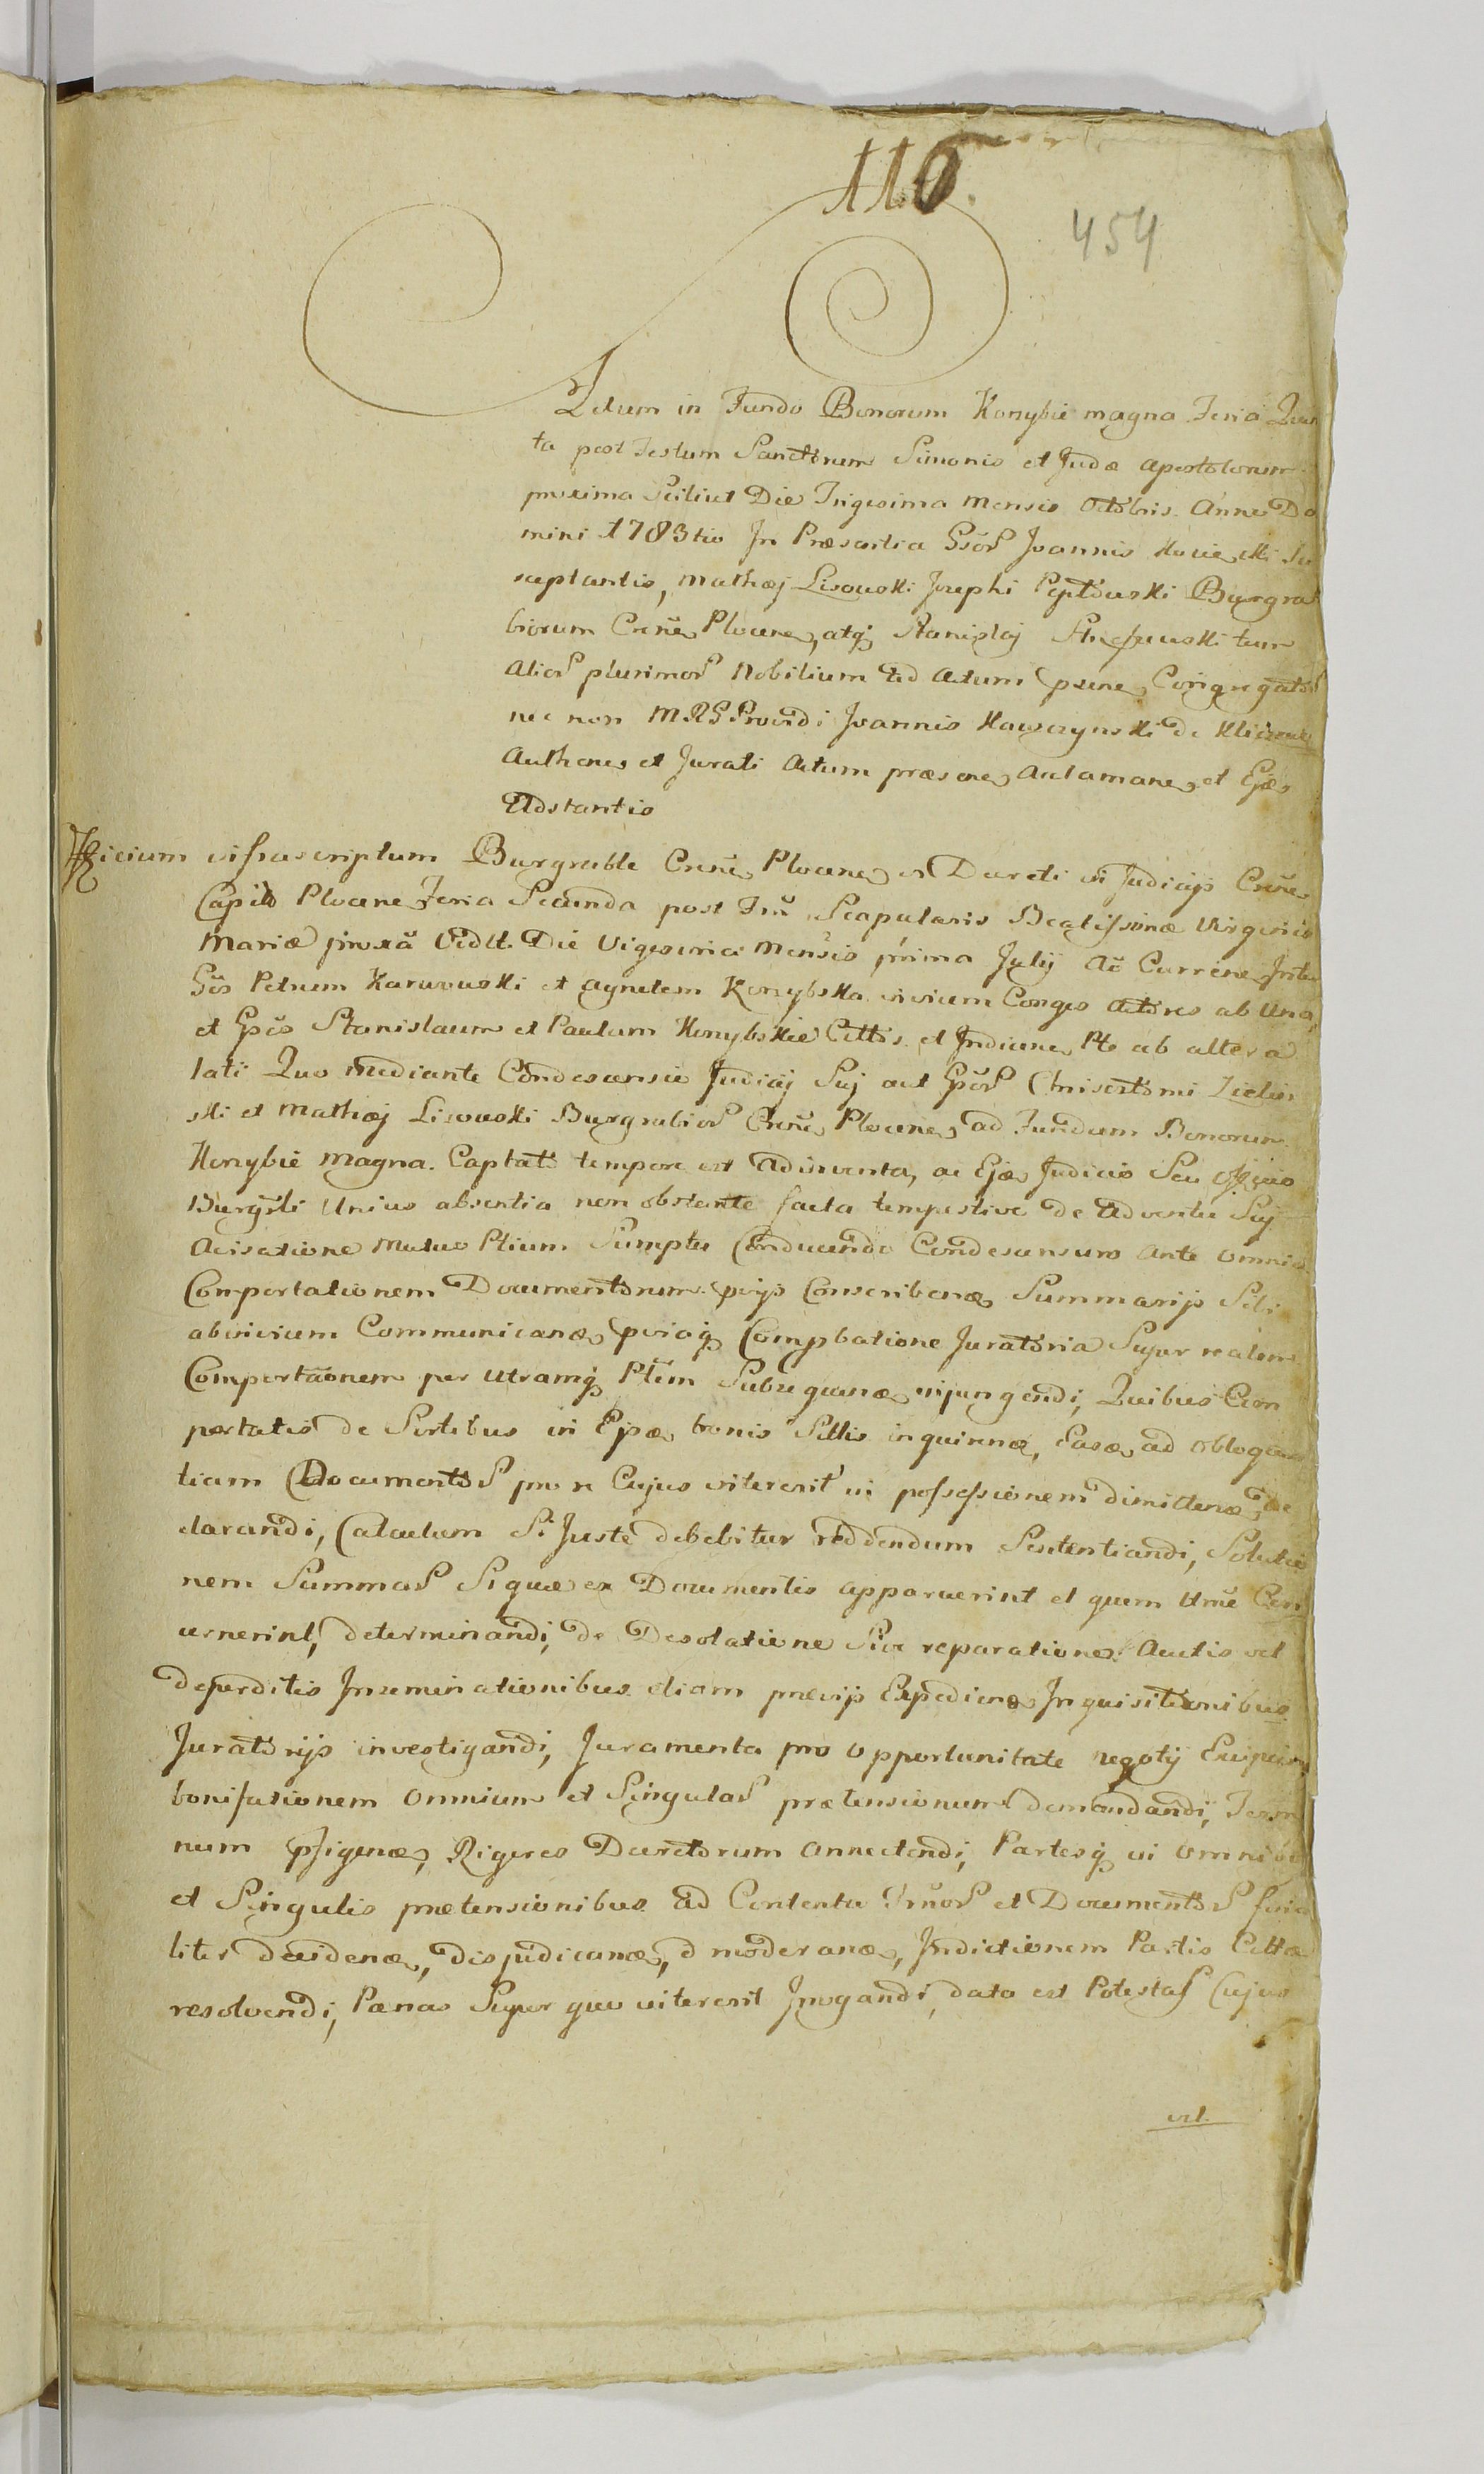 110.
454
Actum in Fundo Bonorum Konybie magna Feria Quin
ta post Festum Sanctorum Simonis et Judæ Apostolorum
proxima Scilicet Die Trigesima Mensis Octobris Anno Do
mini 1783tio In Præsentia Gsor Joannis Su
sceptantis, Mathæj Lisowski Josephi Burgra
biorum Crene Plocene, atq Stanislaj tum
Alior plurimor Nobilium ad Actum psene Congregator
nec non Providi Joannis de
et Jurati Actum præsene Aclamane et Ejæ
Adstantis
infrascriptum Burgrable Crene Plocene vi Decreti in Judicijs Crene
Capit Plocene Feria Secunda post Frm Scapularis Beatissimæ Virginis
Mariæ proxa Vidlt. Die Vigesima Mensis prima Julij Ao Currene Inter
Gsos Petrum Karwowski et Agnetem Konybska invicem Conges Actores ab Una
et Gsos Stanislaum et Paulum Konybskie Cittos. et Inducene Pte ab altera
lati Quo mediante Condescensio Judicij Suj aut Gsor Chrisostomi Zielin
ski et Mathæj Lisowski Burgrabior Crene Plocene ad Fundum Bonorum
Konybie magna. Captato tempore est Adinventa, ac Ejæ Judicio Seu Officio
Burgbli Unius absentia non obstante facta tempestive de Adventu Suj
Avisatione Mutuo Ptium Sumptu Conducendo Condescensuro Ante omnia
Comportationem Documentorum pvijs Conscribenæ Summarijs Sibi
abinvicem Communicanæ pviaq Compbatione Juratoria Super realem
Comportaonem per Utramq Ptem Subsequenæ injungendi, Quibus Com
portatis de Sortibus in Ejsæ bonis Sittis inquirenæ, Easæ ad obloquen
tiam Documentor pro re Cujus viterent in possessionem dimittenæ de
clarandi, Calculum Si Juste debebitur reddendum Sententiandi, Solutio
nem Summar Si quæ ex Documentis apparuerint et quem Ume Con
cernerint, determinandi, de Desolatione Sive reparatione Auctis vel
deperditis Inseminationibus etiam prævijs Expedienæ Inquisitionibus
Juratorijs investigandi, Juramenta pro opportunitate negotij
bonifationem omnium et Singular prætensionum demandandi, Termi
num pfigenæ, Rigores Decretorum annectendi, Partesq in omnibus
et Singulis prætensionibus ad Contenta Frnor et Documentor fina
liter decidenæ, disjudicanæ, moderanæ, Indictionem Partis Cittæ
resolvendi, Pænas Super quo viterent Irrogandi, data est Potestas Cujus
vel